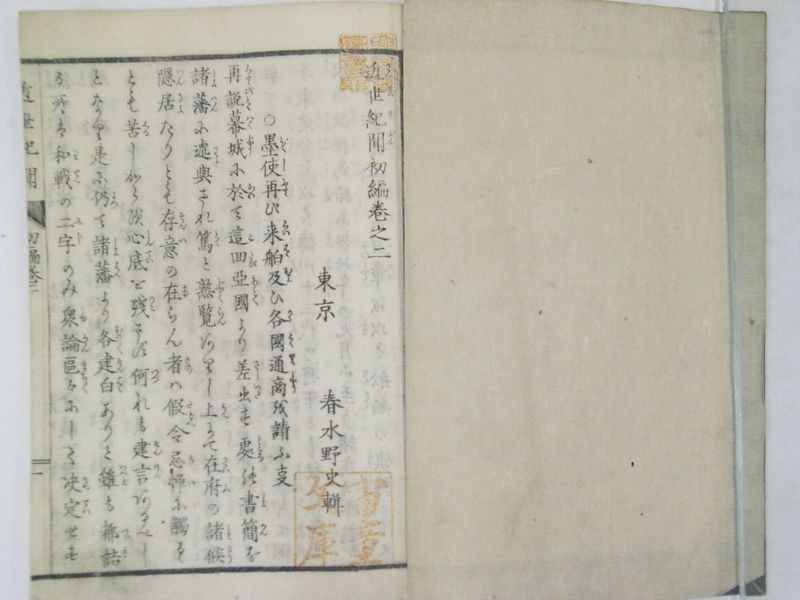 近世紀聞初編卷之二
東京 春水野史輯
○墨使再び来舶及び各國通商を請ふ事
再説幕城に於て這回亜國より差出せる處の書簡を
諸藩に遞與され篤と熟覧ありし上にて在府の諸候
隠居たりとも存意の在らん者ハ假令忌憚に觸るゝ
とも苦しからず心底を残さず何れも建言あるべし
となり是に仍て諸藩より各建白ありと雖も都詰
る所は和戦の二字のみ衆論區々にして决定せず
近世紀聞 初編卷二 一